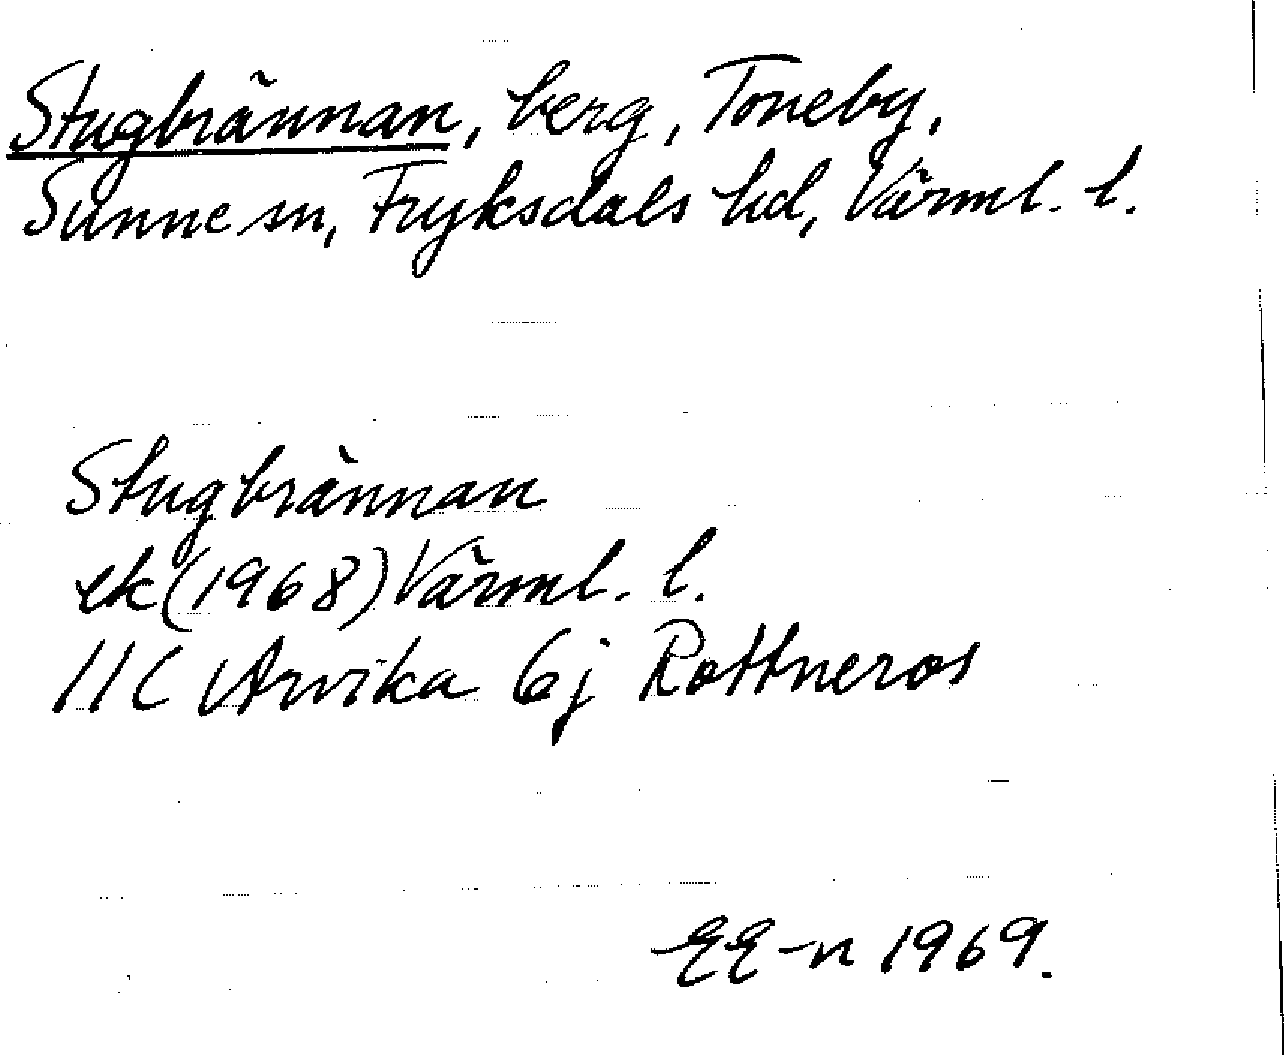 Stugbrännan, berg, Toneby,
Sunne sn, Fryksdals hd, Värml. l.
Stugbrännan
ek (1968) Värml. l.
11C Arvika 6j Rottneros
EE-n 1969.